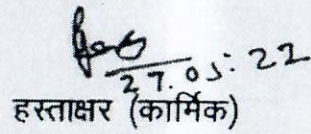 27.05.22
हस्ताक्षर (कार्मिक)